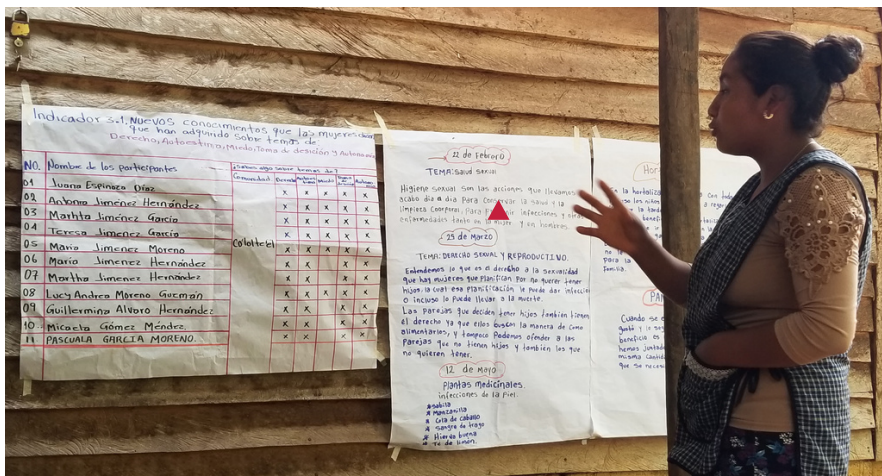 Indicador 3.1. Nuevos conocimientos que las mujeres
que han adquirido sobre temas de
Derecho, Autoestima, Miedo, Toma de desición y Autonomía
NO. Nombre de los participantes
¿Sabes algo sobre temas de?
Comunidad Derecho Miedo
01 Juana Espinoza Díaz x x x x x
02 Antonia Jiménez Hernández x x x x x
03 Marhta Jiménez García x x x x x
04 Teresa Jimenez García x x x x x
05 Maria Jimenez Moreno Cololtelel x x x x x
06 Maria Jimenez Hernández x x x x
07 Martha Jimenez Hernández x x x x
08 Lucy Andrea Moreno Guzmán x x x x x
09 Guillermina Alvaro Hernández x x x x
10 Micaela Gómez Méndez. x x x x
11 PASCUALA GARCIA MORENO. x x x x
22 de Febrero
TEMA: Salud sexual
Higiene sexual son las acciones que llevamos
acabo día a día para conservar la salud y la
limpieza coorporal, para infecciones y
enfermedades tanto en la mujer y en hombres.
23 de Marzo
TEMA: DERECHO SEXUAL Y REPRODUCTIVO.
Entendemos lo que es el derecho a la sexualidad
que hay mujeres que planifican por no querer tener
hijos, la cual esa planificación le puede dar
o incluso lo puede llevar a la muerte.
Las parejas que deciden tener hijos tambien tienen
el derecho ya que ellos buscan la manera de como
alimentarlos, y tampoco Podemos ofender a las
parejas que no tienen hijos y tambien los que
no quieren tener.
12 de Mayo
Plantas medicinales.
infecciones de la piel.
*sabila
*Manzanilla
* Cola de caballo
* Sangre de drago
* Hierva buena
* Té de limón.
Hor
la hortaliza Con
los
la
para la
familia.
PA
Cuando se
beneficio es
hemos juntado
misma
que se